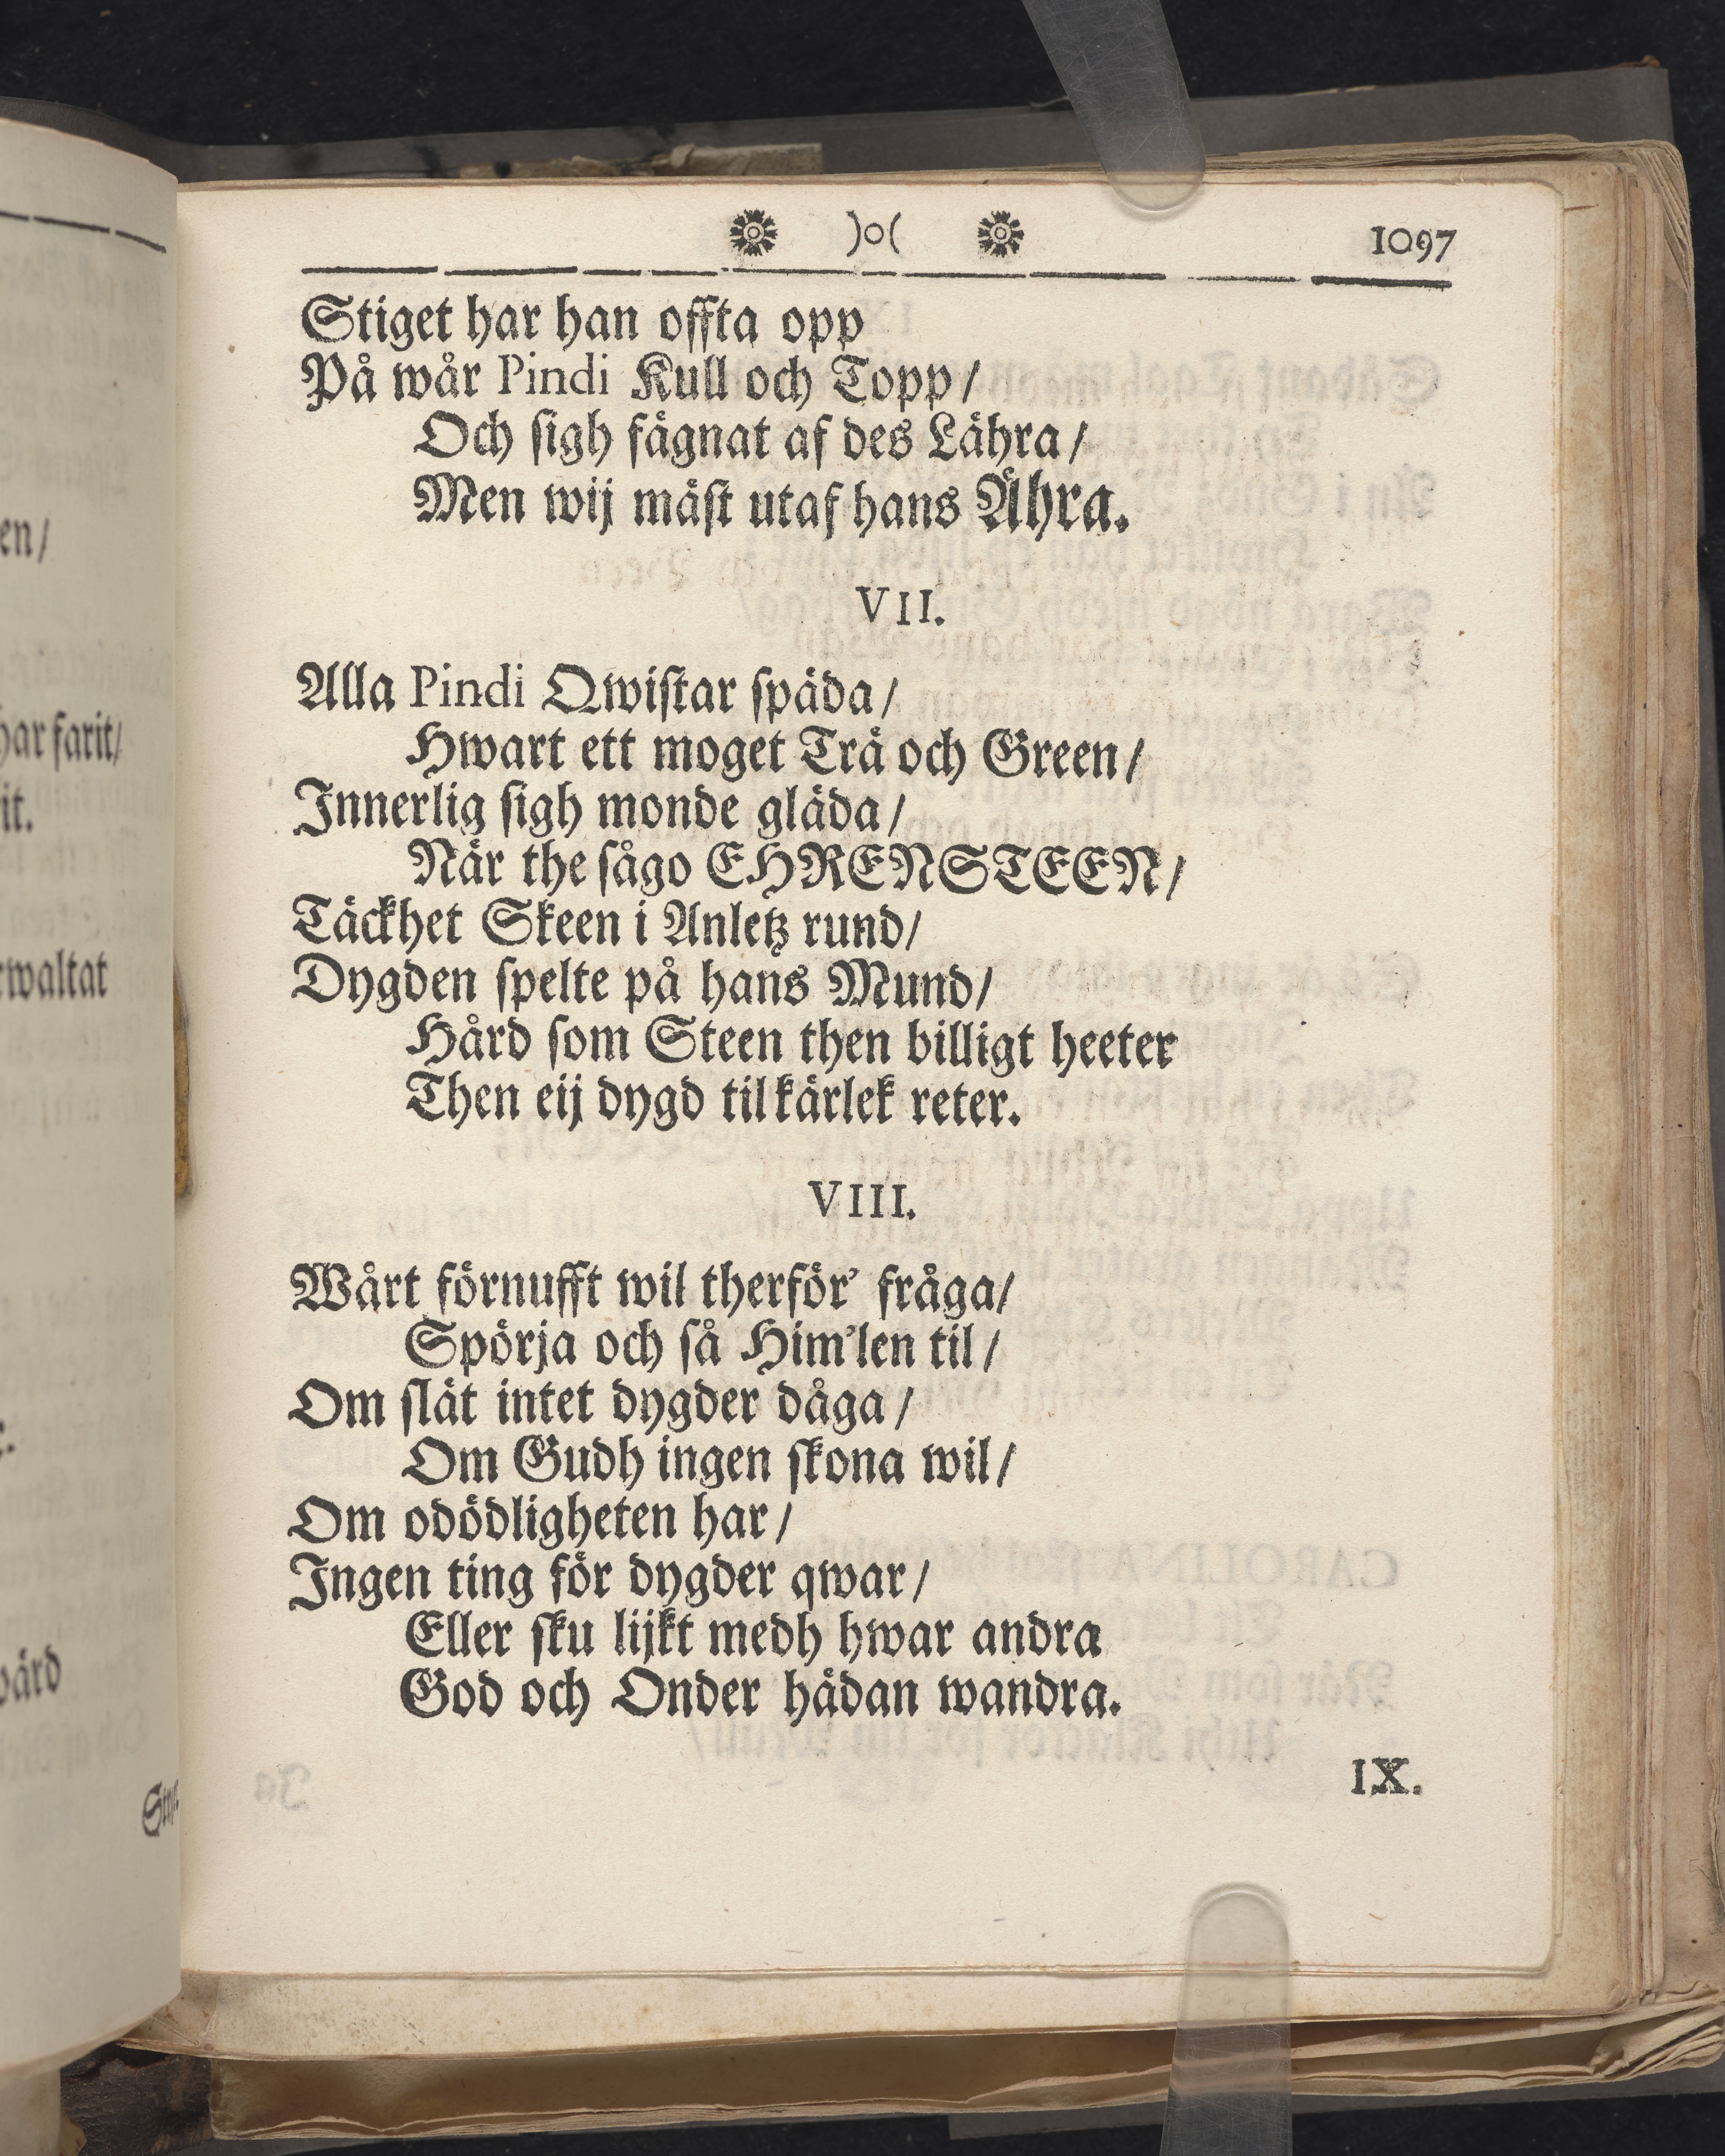 )o( 1097
Stiget har han offta opp
På wår Pindi Kull och Topp/
Och sigh fägnat af des Lähra/
Men wij mäst utaf hans Ähra.
VII.
Alla Pindi Qwistar späda/
Hwart ett moget Trä och Green/
Innerlig sigh monde gläda/
När the sågo EHRENSTEEN/
Täckhet Skeen i Anletz rund/
Dygden spelte på hans Mund/
Hård som Steen then billigt heeter
Then eij dygd til kärlek reter.
VIII.
Wårt förnufft wil therför' fråga/
Spörja och så Him'len til/
Om slät intet dygder dåga/
Om Gudh ingen skona wil/
Om odödligheten har/
Ingen ting för dygder qwar/
Eller sku lijkt medh hwar andra
God och Onder hädan wandra.
IX.
en/
har farit/
it.
rwaltat